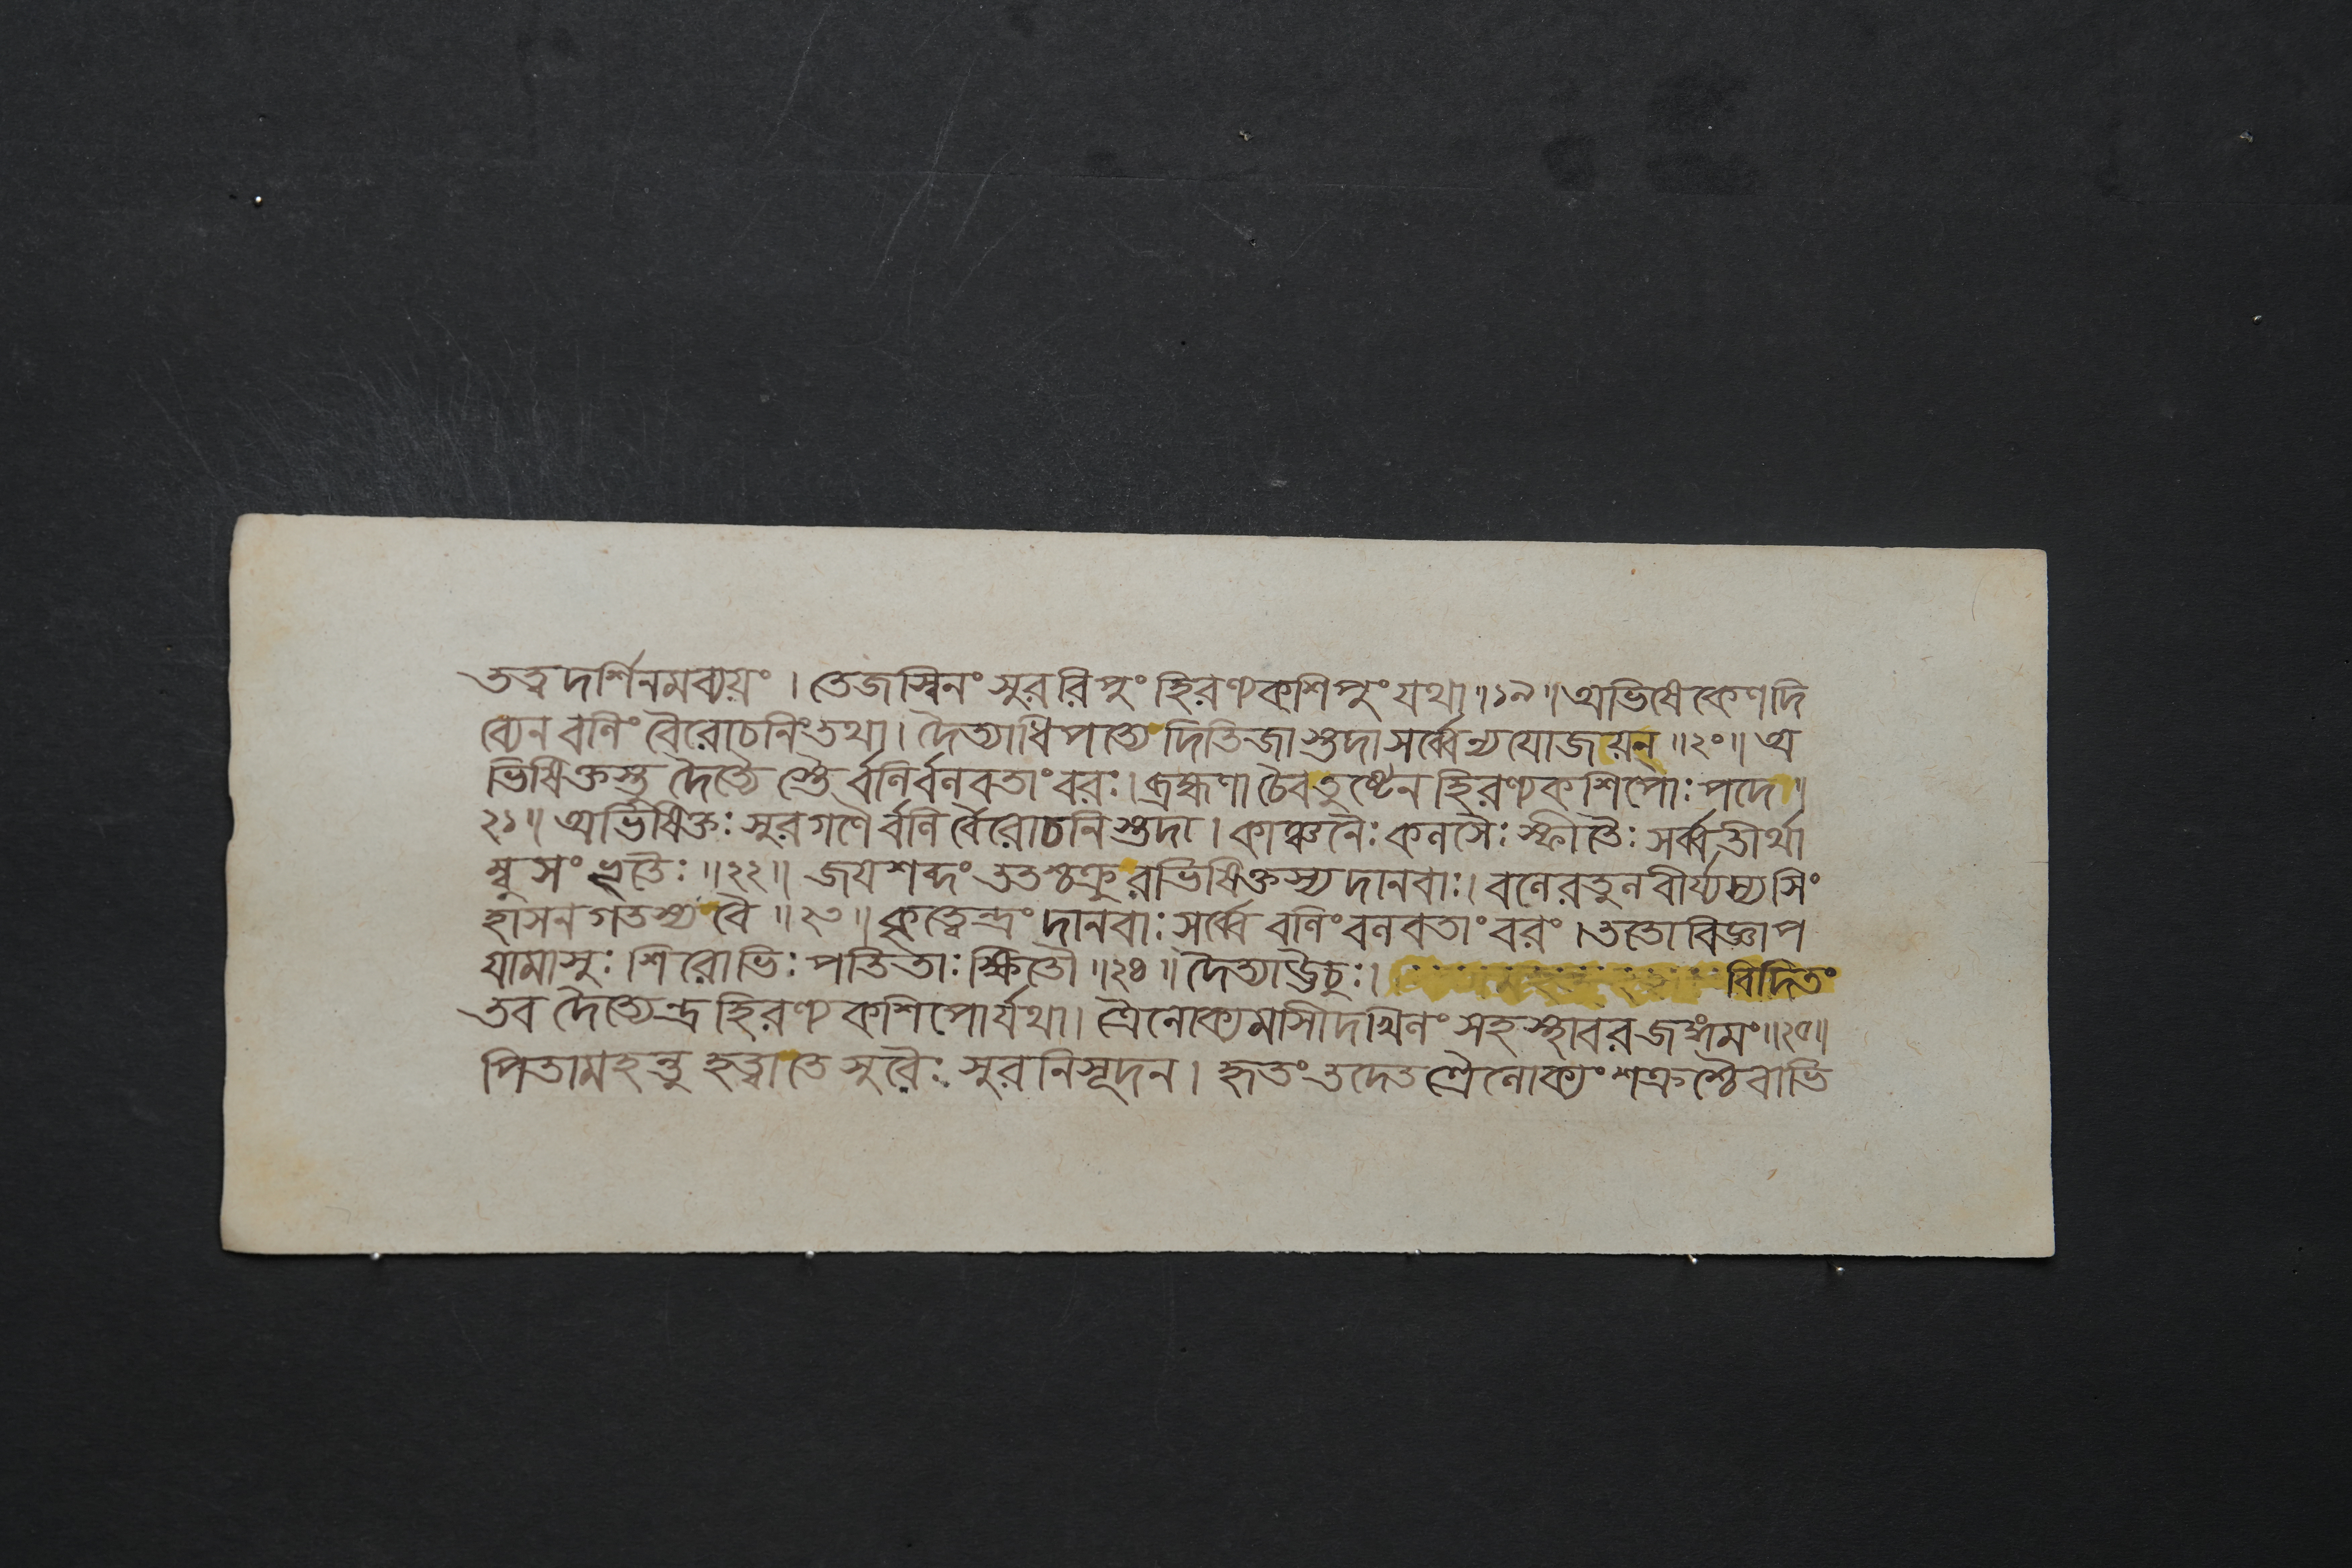 তত্বদর্শিনমব্যয়ং । তেজস্বিনং সুররিপুং হিরণ্যকশিপুং যথা ॥১৯॥ অভিষেকেণ দি
ব্যেন বলিং বৈরোচনিং তথা । দৈত্যাধিপত্যে দিতিজাস্তদা সর্ব্বেন্যযোজয়ন্ ॥২০॥ অ
ভিষিক্তস্তু দৈত্যৈস্তৈর্বলির্বলবতাং বরঃ । ব্রহ্মণা চৈব তুষ্টেন হিরণ্যকশিপোঃ পদে ॥
২১॥ অভিষিক্তঃ সুরগণৈর্বলির্বৈরোচনিস্তদা । কাঞ্চনৈঃ কলসৈঃ স্ফীতৈঃ সর্ব্বতীর্থা
ম্বুসংভৃতৈঃ ॥২২॥ জয়শব্দং ততশ্চক্রুরভিষিক্তস্য দানবাঃ । বলেরতুলবীর্য্যস্য সিং
হাসনগতস্য বৈ ॥২৩॥ কৃত্বেন্দ্রং দানবাঃ সর্ব্বে বলিং বলবতাং বরং । ততো বিজ্ঞাপ
যামাসুঃ শিরোভিঃ পতিতাঃ ক্ষিতৌ ॥২৪॥ দৈত্যা ঊচুঃ । বিদিতং
তব দৈত্যেন্দ্র হিরণ্যকশিপোর্যথা । ত্রৈলোক্যমাসীদখিলং সহ স্থাবরজঙ্গমং ॥২৫॥
পিতামহন্তু হত্বা তে সুরৈঃ সুরনিসূদন । হৃতং তদেতত্রৈলোক্যং শক্রশ্চৈবাভি